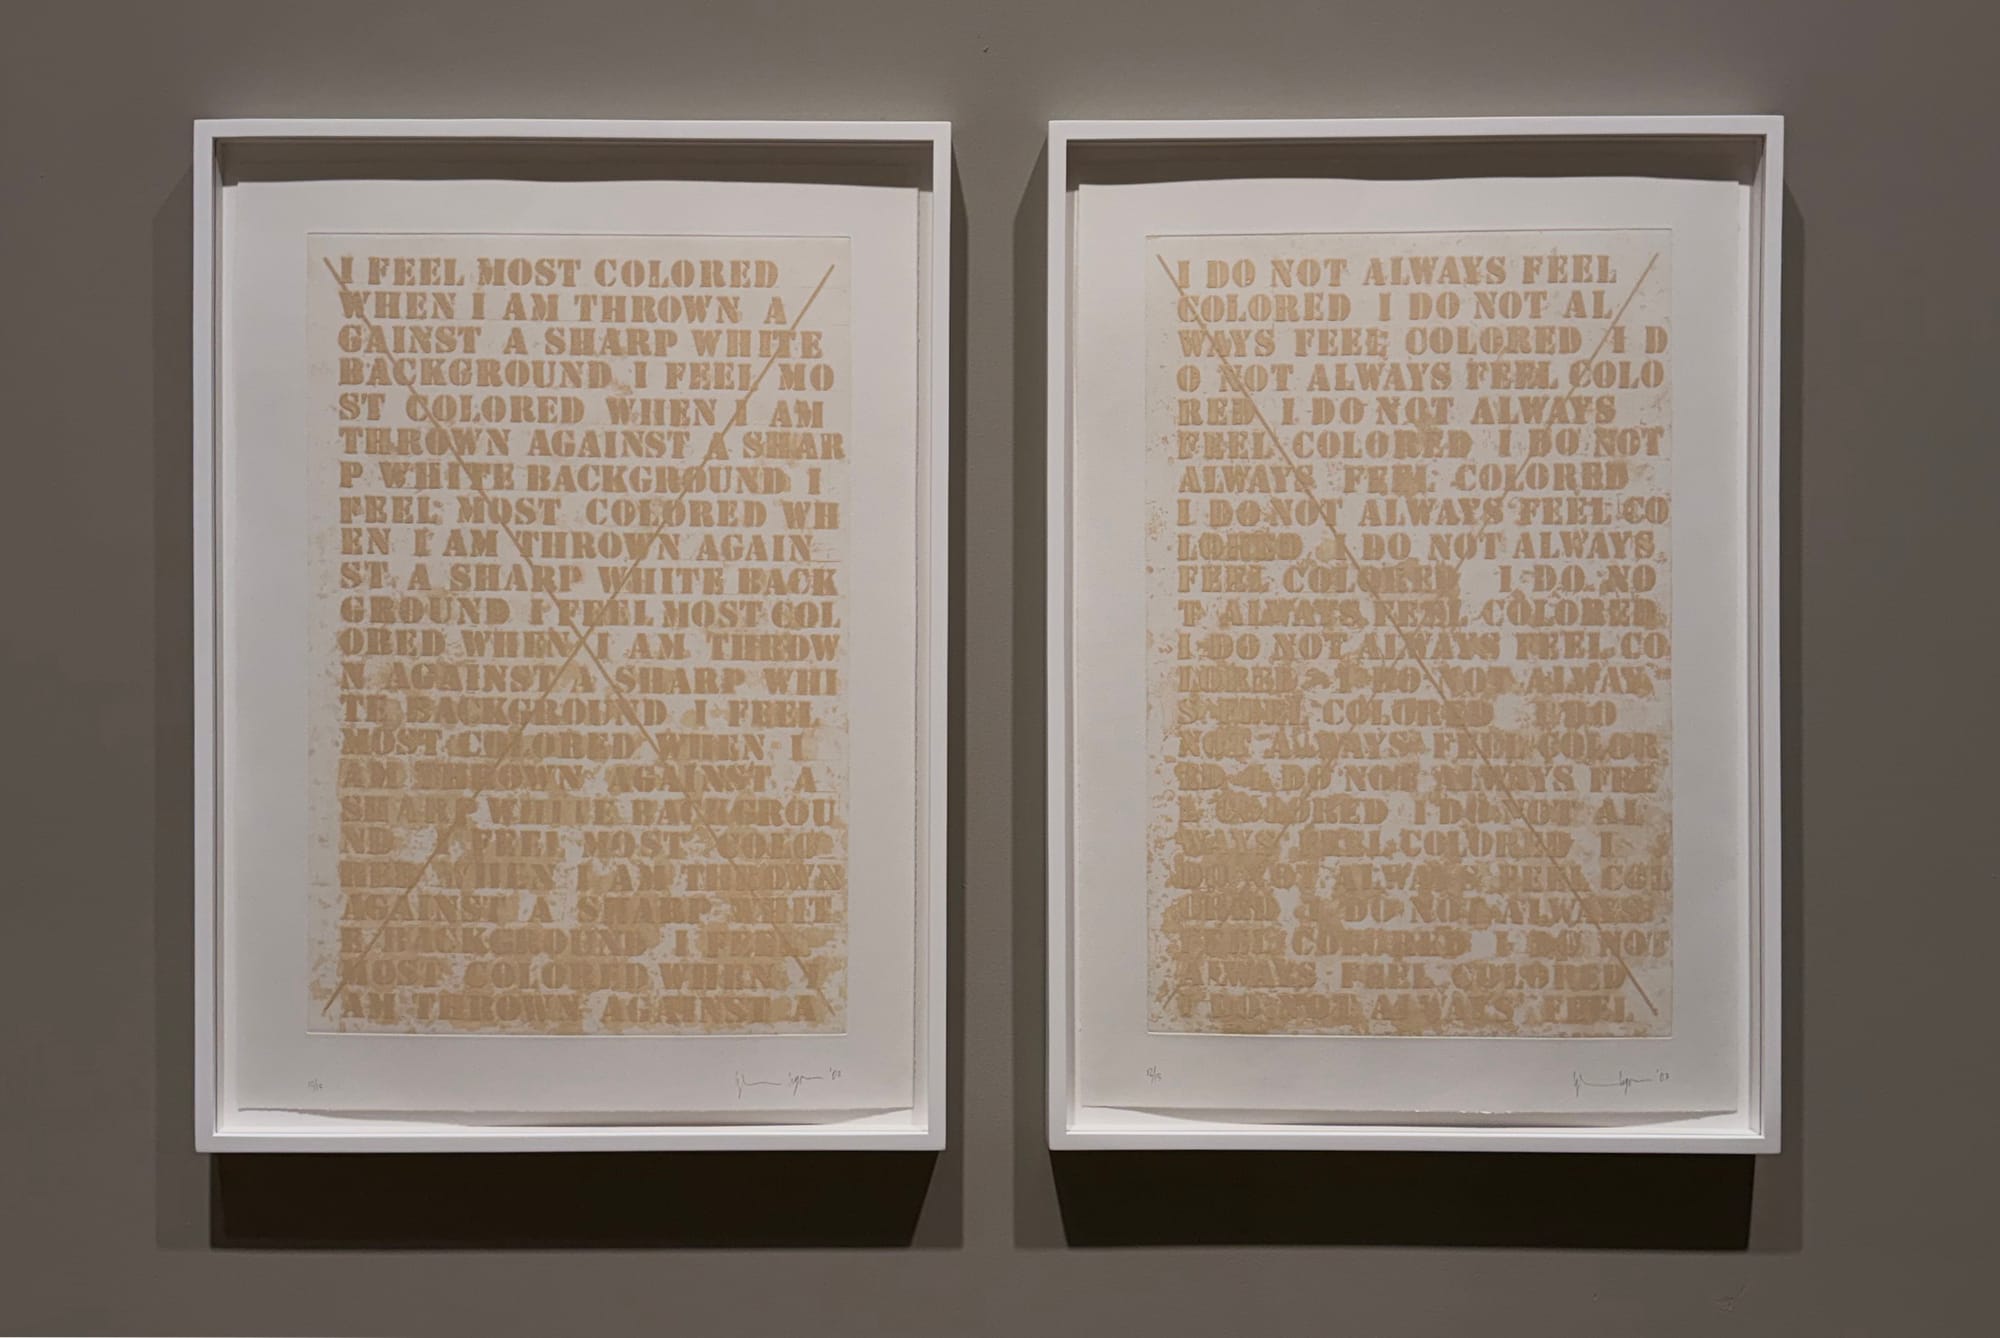 I FEEL MOST COLORED
WHEN I AM THROWN A
GAINST A SHARP WHITE
BACKGROUND I FEEL MO
ST COLORED WHEN I AM
THROWN AGAINST A SHAR
P WHITE BACKGROUND I
FEEL MOST COLORED WH
EN I AM THROWN AGAIN
ST A SHARP WHITE BACK
GROUND I FEEL MOST COL
ORED WHEN I AM THROW
N AGAINST A SHARP WHI
TE BACKGROUND I FEEL
MOST COLORED WHEN I
AM THROWN AGAINST A
SHARP WHITE BACKGROU
ND I FEEL MOST COLO
RED WHEN I AM THROWN
AGAINST A SHARP WHIT
E BACKGROUND I FEEL
MOST COLORED WHEN I
AM THROWN AGAINST A
'03
I DO NOT ALWAYS FEEL
COLORED I DO NOT AL
WAYS FEEL COLORED I D
O NOT ALWAYS FEEL COLO
RED I DO NOT ALWAYS
FEEL COLORED I DO NOT
ALWAYS FEEL COLORED
I DO NOT ALWAYS FEEL CO
LORED I DO NOT ALWAYS
FEEL COLORED I DO NO
T ALWAYS FEEL COLORED
I DO NOT ALWAYS FEEL CO
LORED I DO NOT ALWAY
S FEEL COLORED I DO
NOT ALWAYS FEEL COLOR
ED I DO NOT ALWAYS FEE
L COLORED I DO NOT AL
WAYS FEEL COLORED I
DO NOT ALWAYS FEEL COL
ORED I DO NOT ALWAYS
FEEL COLORED I DO NOT
ALWAYS FEEL COLORED
I DO NOT ALWAYS FEEL
12/15 '03